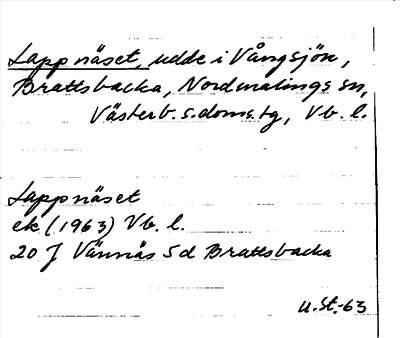 Lappnäset, udde i Vångsjön,
Brattsbacka, Nordmalings sn,
Västerb. s. doms. tg, Vb. l.
Lappnäset
ek (1963) Vb. l.
20 J Vännäs Sd Brattsbacka
U. St. -63